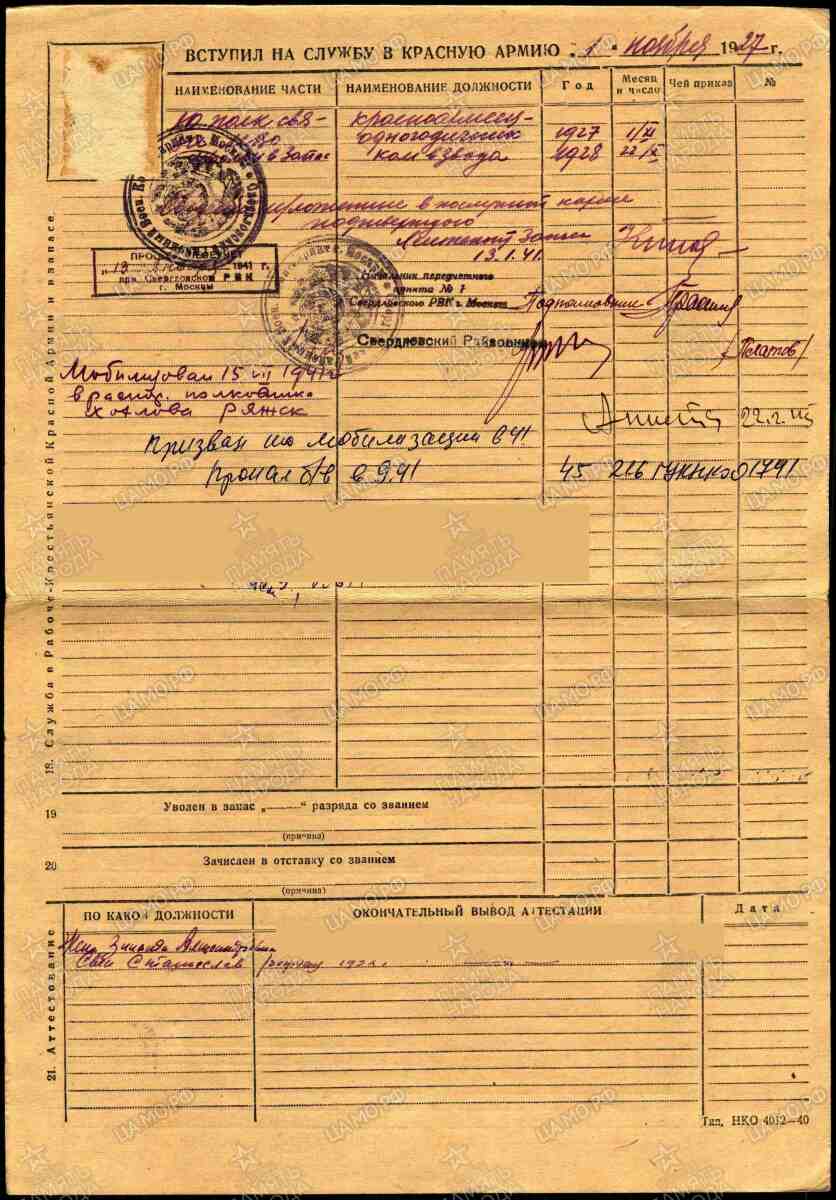 ВСТУПИЛ НА СЛУЖБУ В КРАСНУЮ АРМИЮ „ 1 “ ноября 1927 г.
НАИМЕНОВАНИЕ ЧАСТИ НАИМЕНОВАНИЕ ДОЛЖНОСТИ Год Месяц и число Чей приказ №
10 полк свя- красноармеец-
одногодичник 1927 1/XI
в запас ком взвода 1928 22/X
приложение в послужной карте
подтверждаю
13.1.41.
1941 г.
при Свердловском РВК
г. Москвы
Начальник переучетного
пункта № 1
Свердловского РВК г. Москвы Подполковник
Свердловский Райвоенком
/Платов/
Мобилизован 15 VII 1941 г
в распор. полковника
РЯЖСК
Призван по мобилизации в 41
22.2.
Пропал б/в в 9.41 45 216 ГУКНКО 01741
18. Служба в Рабоче-Крестьянской Красной Армии и в запасе.
19 Уволен в запас „——“ разряда со званием
(причина)
20 Зачислен в отставку со званием
(причина)
21. Аттестование
ПО КАКОЙ ДОЛЖНОСТИ ОКОНЧАТЕЛЬНЫЙ ВЫВОД АТТЕСТАЦИИ Дата
Жена Зинаида Александровна
Сын Станислав
Тип. НКО 4012—40
ЦАМО.РФ
ПАМЯТЬ НАРОДА